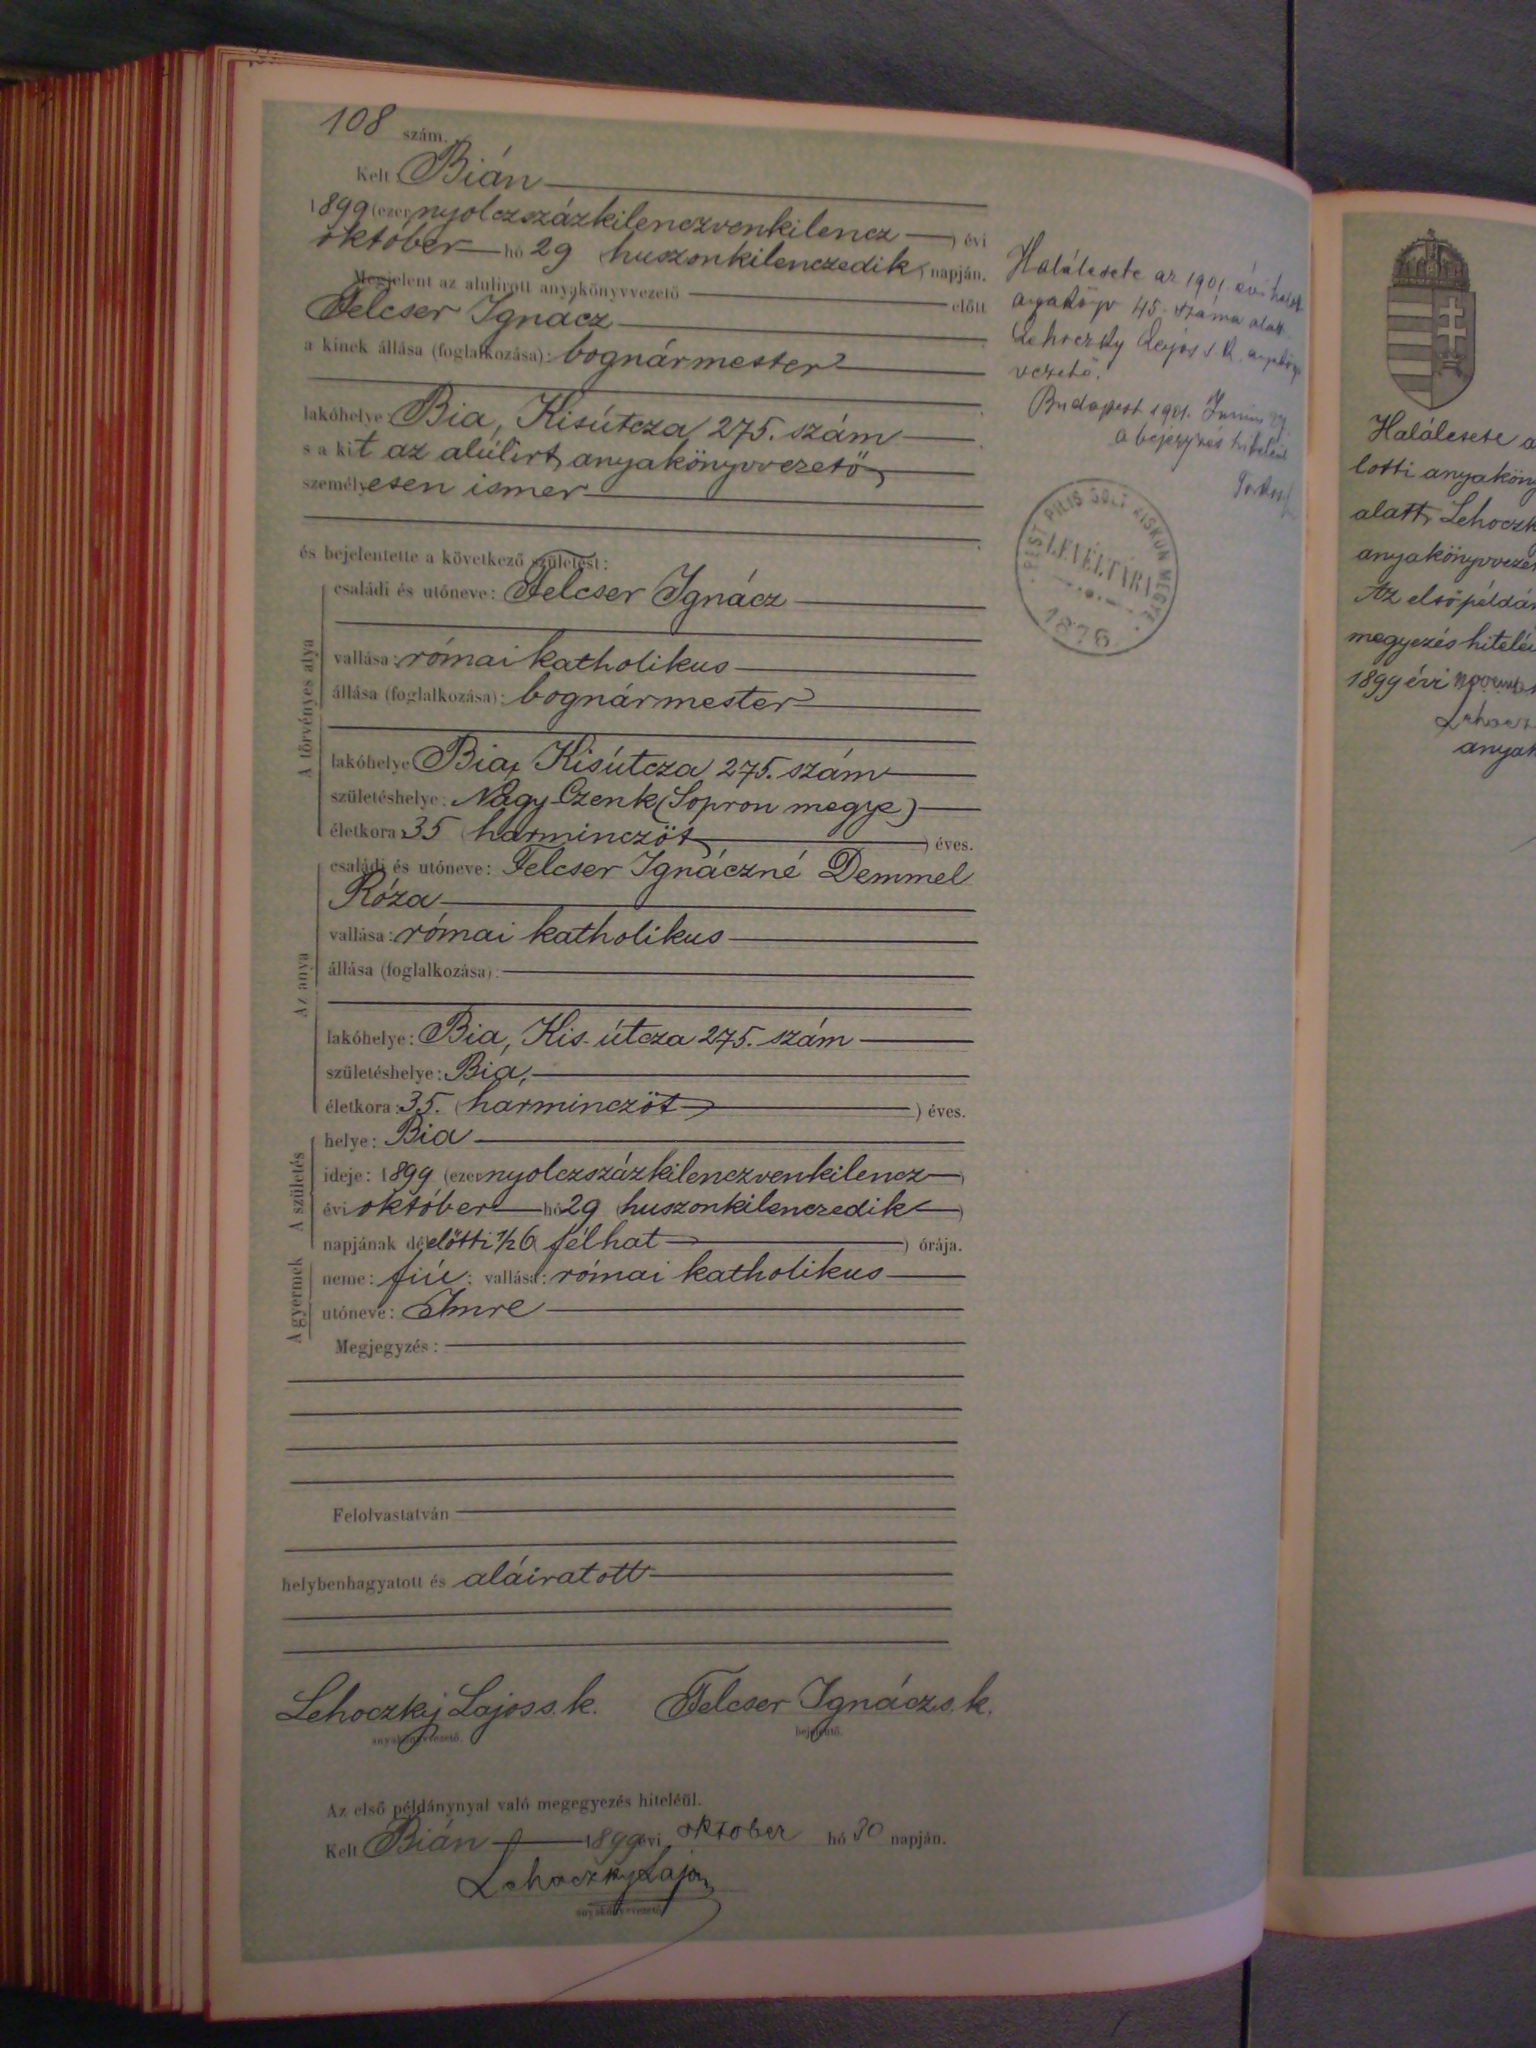 108 szám.
Kelt Bián
1899 (ezernyolczszázkilenczvenkilencz) évi
október hó 29 (huszonkilenczedik) napján.
Megjelent az alulirott anyakönyvvezető előtt
Felcser Ignácz
a kinek állása (foglalkozása): bognármester
lakóhelye: Bia, Kisútcza 275. szám
s a kit az alúlirt anyakönyvvezető
személyesen ismer
és bejelentette a következő születést:
A törvényes atya
családi és utóneve: Felcser Ignácz
vallása: római katholikus
állása (foglalkozása): bognármester
lakóhelye Bia, Kisútcza 275. szám
születéshelye: Nagy-Czenk (Sopron megye)
életkora 35 (harminczöt) éves.
Az anya
családi és utóneve: Felcser Ignáczné Demmel
Róza
vallása: római katholikus
állása (foglalkozása):
lakóhelye: Bia, Kis-útcza 275. szám
születéshelye: Bia,
életkora: 35. (harminczöt) éves.
A születés
helye: Bia
ideje: 1899 (ezernyolczszázkilenczvenkilencz)
évi október hó 29 (huszonkilenczedik)
napjának délelőtti 1/2 6 (félhat) órája.
A gyermek
neme: fiú; vallása: római katholikus
utóneve: Imre
Megjegyzés:
Felolvastatván
helybenhagyatott és aláiratott
Lehoczky Lajos s. k. Felcser Ignácz s. k.
anyakönyvvezető. bejelentő.
Az első példánynyal való megegyezés hiteléül.
Kelt Bián 1899 évi oktober hó 30 napján.
Lehoczky Lajos
anyakönyvvezető
Halálesete az 1901 évi halott
anyakönyv 45. száma alatt.
Lehoczky Lajos s. k. anyakönyv
vezető.
Budapest 1901. Junius
a bejegyzés hiteleül
PEST PILIS SOLT KISKUN MEGYE
LEVÉLTÁRA
1876
Halálesete a
lotti anyaköny
alatt, Lehoczk
anyakönyvvezet
Az első példán
megyezés hiteléü
1899 évi novemb
Lehocz
anyak